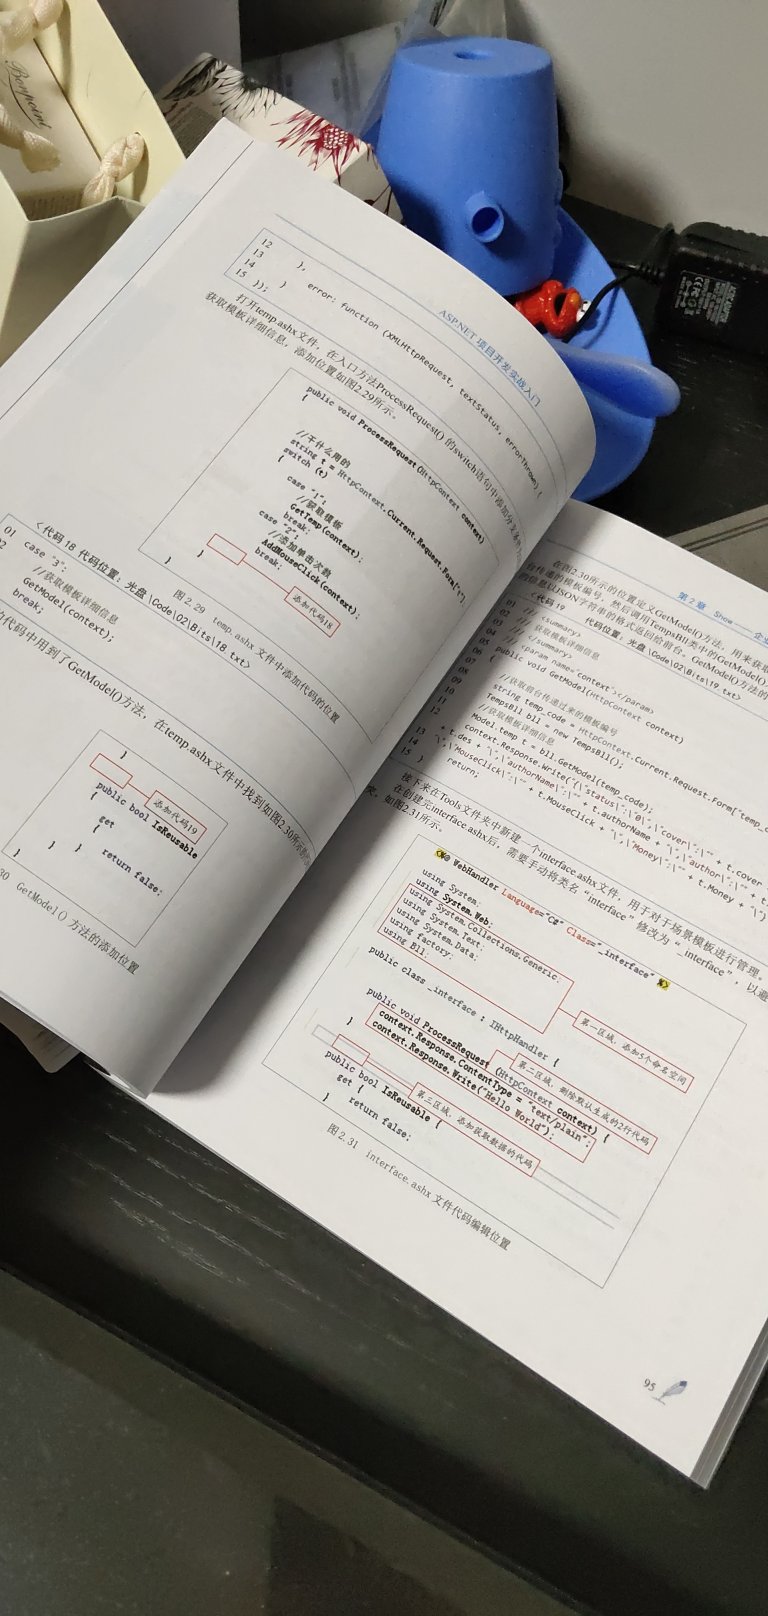 Bonpoint
ASP.NET 项目开发实战入门
12 },
13 error: function (XMLHttpRequest, textStatus, errorThrown) {
14 }
15 });
打开temp.ashx文件，在入口方法ProcessRequest() 的switch语句中添加分支
获取模板详细信息，添加位置如图2.29所示。
public void ProcessRequest(HttpContext context)
{
//干什么用的
string t = HttpContext.Current.Request.Form["t"];
switch (t)
{
case "1":
//获取模板
GetTemp(context);
break;
case "2":
//添加单击次数
AddMouseClick(context);
break;
添加代码18
}
}
图2.29 temp.ashx 文件中添加代码的位置
<代码18 代码位置：光盘\Code\02\Bits\18.txt>
01 case "3":
02 //获取模板详细信息
GetModel(context);
break;
代码中用到了GetModel()方法，在temp.ashx文件中找到如图2.30所示的
}
添加代码19
public bool IsReusable
{
get
{
return false;
}
}
}
30 GetModel() 方法的添加位置
第2章 Show
在图2.30所示的位置定义GetModel()方法，用来获取
台传递的模板编号，然后调用TempsBll类中的GetModel()方
的信息以JSON字符串的格式返回给前台。GetModel()方法的
<代码19 代码位置：光盘\Code\02\Bits\19.txt>
01 // <summary>
02 /// 获取模板详细信息
03 /// </summary>
04 /// <param name="context"></param>
05 public void GetModel(HttpContext context)
06 {
07 //获取前台传递过来的模板编号
08 string temp_code = HttpContext.Current.Request.Form["temp_c
09 TempsBll bll = new TempsBll();
10 //获取模板详细信息
11 Model.temp t = bll.GetModel(temp_code);
12 context.Response.Write("{\"status\":\"0\",\"cover\":\"" + t.cover
+ t.des + "\",\"authorName\":\"" + t.authorName + "\",\"author\":\"" + t.
13 "\",\"MouseClick\":\"" + t.MouseClick + "\",\"Money\":\"" + t.Money + "\"}
14 return;
15 }
接下来在Tools文件夹中新建一个interface.ashx文件，用于对于场景模板进行管理。
在创建完interface.ashx后，需要手动将类名“interface”修改为“_interface”，以避
突，如图2.31所示。
<%@ WebHandler Language="C#" Class="_interface" %>
using System;
using System.Web;
using System.Collections.Generic;
using System.Text;
using System.Data;
using factory;
using Bll;
第一区域，添加5个命名空间
public class _interface : IHttpHandler {
public void ProcessRequest (HttpContext context) {
context.Response.ContentType = "text/plain";
context.Response.Write("Hello World");
第二区域，删除默认生成的2行代码
}
第三区域，添加获取数据的代码
public bool IsReusable {
get {
return false;
}
图2.31 interface.ashx 文件代码编辑位置
95